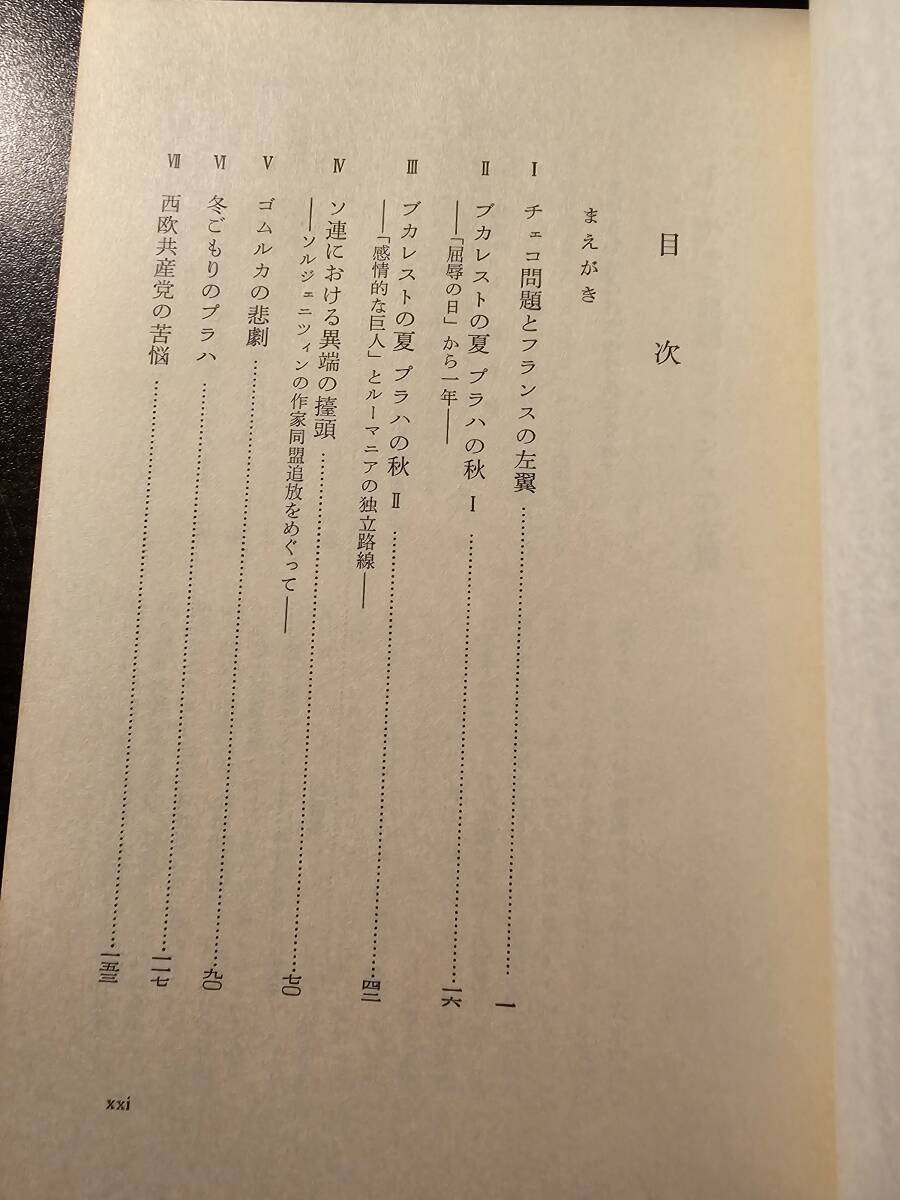 目次
まえがき
Ⅰ チェコ問題とフランスの左翼……………一
Ⅱ ブカレストの夏 プラハの秋 Ⅰ……………一六
――「屈辱の日」から一年――
Ⅲ ブカレストの夏 プラハの秋 Ⅱ……………四二
――「感情的な巨人」とルーマニアの独立路線――
Ⅳ ソ連における異端の擡頭……………七〇
――ソルジェニツィンの作家同盟追放をめぐって――
Ⅴ ゴムルカの悲劇……………九〇
Ⅵ 冬ごもりのプラハ……………一一七
Ⅶ 西欧共産党の苦悩……………一五三
xxi